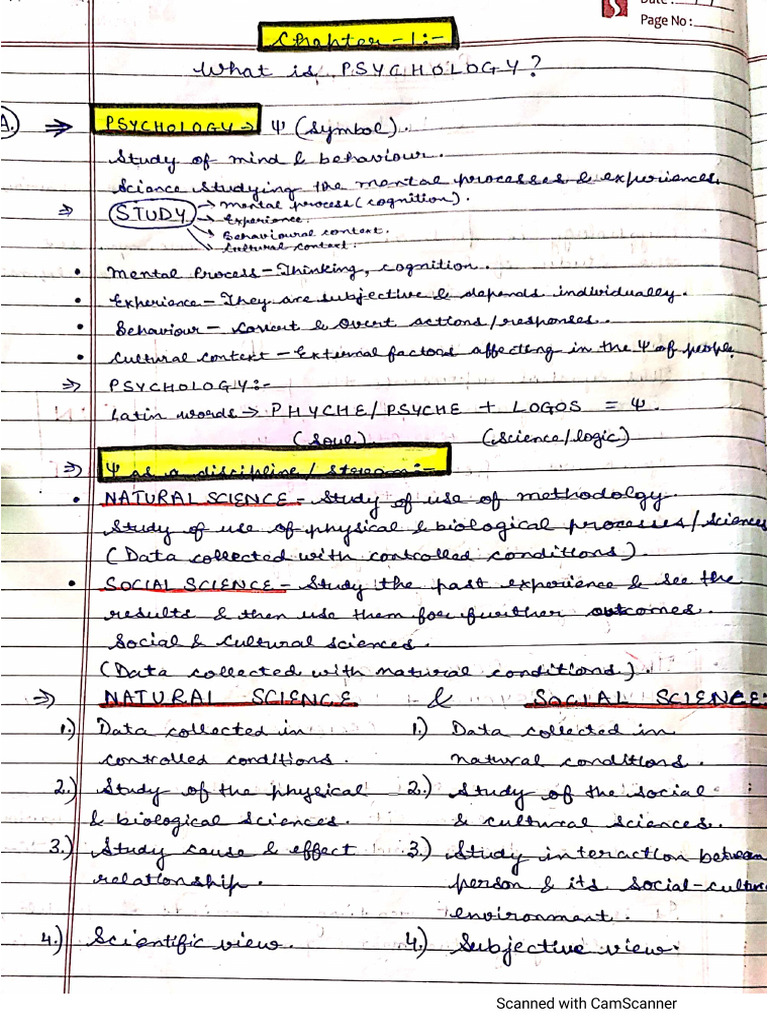 Date: / /
Page No:
Chapter - 1:-
What is PSYCHOLOGY?
A. ⇒ PSYCHOLOGY → Ψ (symbol).
Study of mind & behaviour.
Science studying the mental processes & experiences.
⇒ STUDY → mental process (cognition).
→ Experience.
→ Behavioural context.
→ Cultural context.
• Mental Process - Thinking, cognition.
• Experience - They are subjective & depends individually.
• Behaviour - Covert & Overt actions/responses.
• Cultural context - External factors affecting in the Ψ of people.
⇒ PSYCHOLOGY:-
Latin words → PHYCHE/PSYCHE + LOGOS = Ψ.
(soul) (science/logic)
⇒ Ψ as a discipline/stream:-
• NATURAL SCIENCE - Study of use of methodolgy.
Study of use of physical & biological processes/sciences
(Data collected with controlled conditions).
• SOCIAL SCIENCE - Study the past experience & see the
results & then use them for further outcomes.
Social & cultural sciences.
(Data collected with natural conditions).
⇒ NATURAL SCIENCE & SOCIAL SCIENCE:
1.) Data collected in 1.) Data collected in
controlled conditions. natural conditions.
2.) Study of the physical 2.) Study of the social
& biological sciences. & cultural sciences.
3.) Study cause & effect 3.) Study interaction between
relationship. person & its social-cultur
environment.
4.) Scientific view. 4.) Subjective view.
Scanned with CamScanner